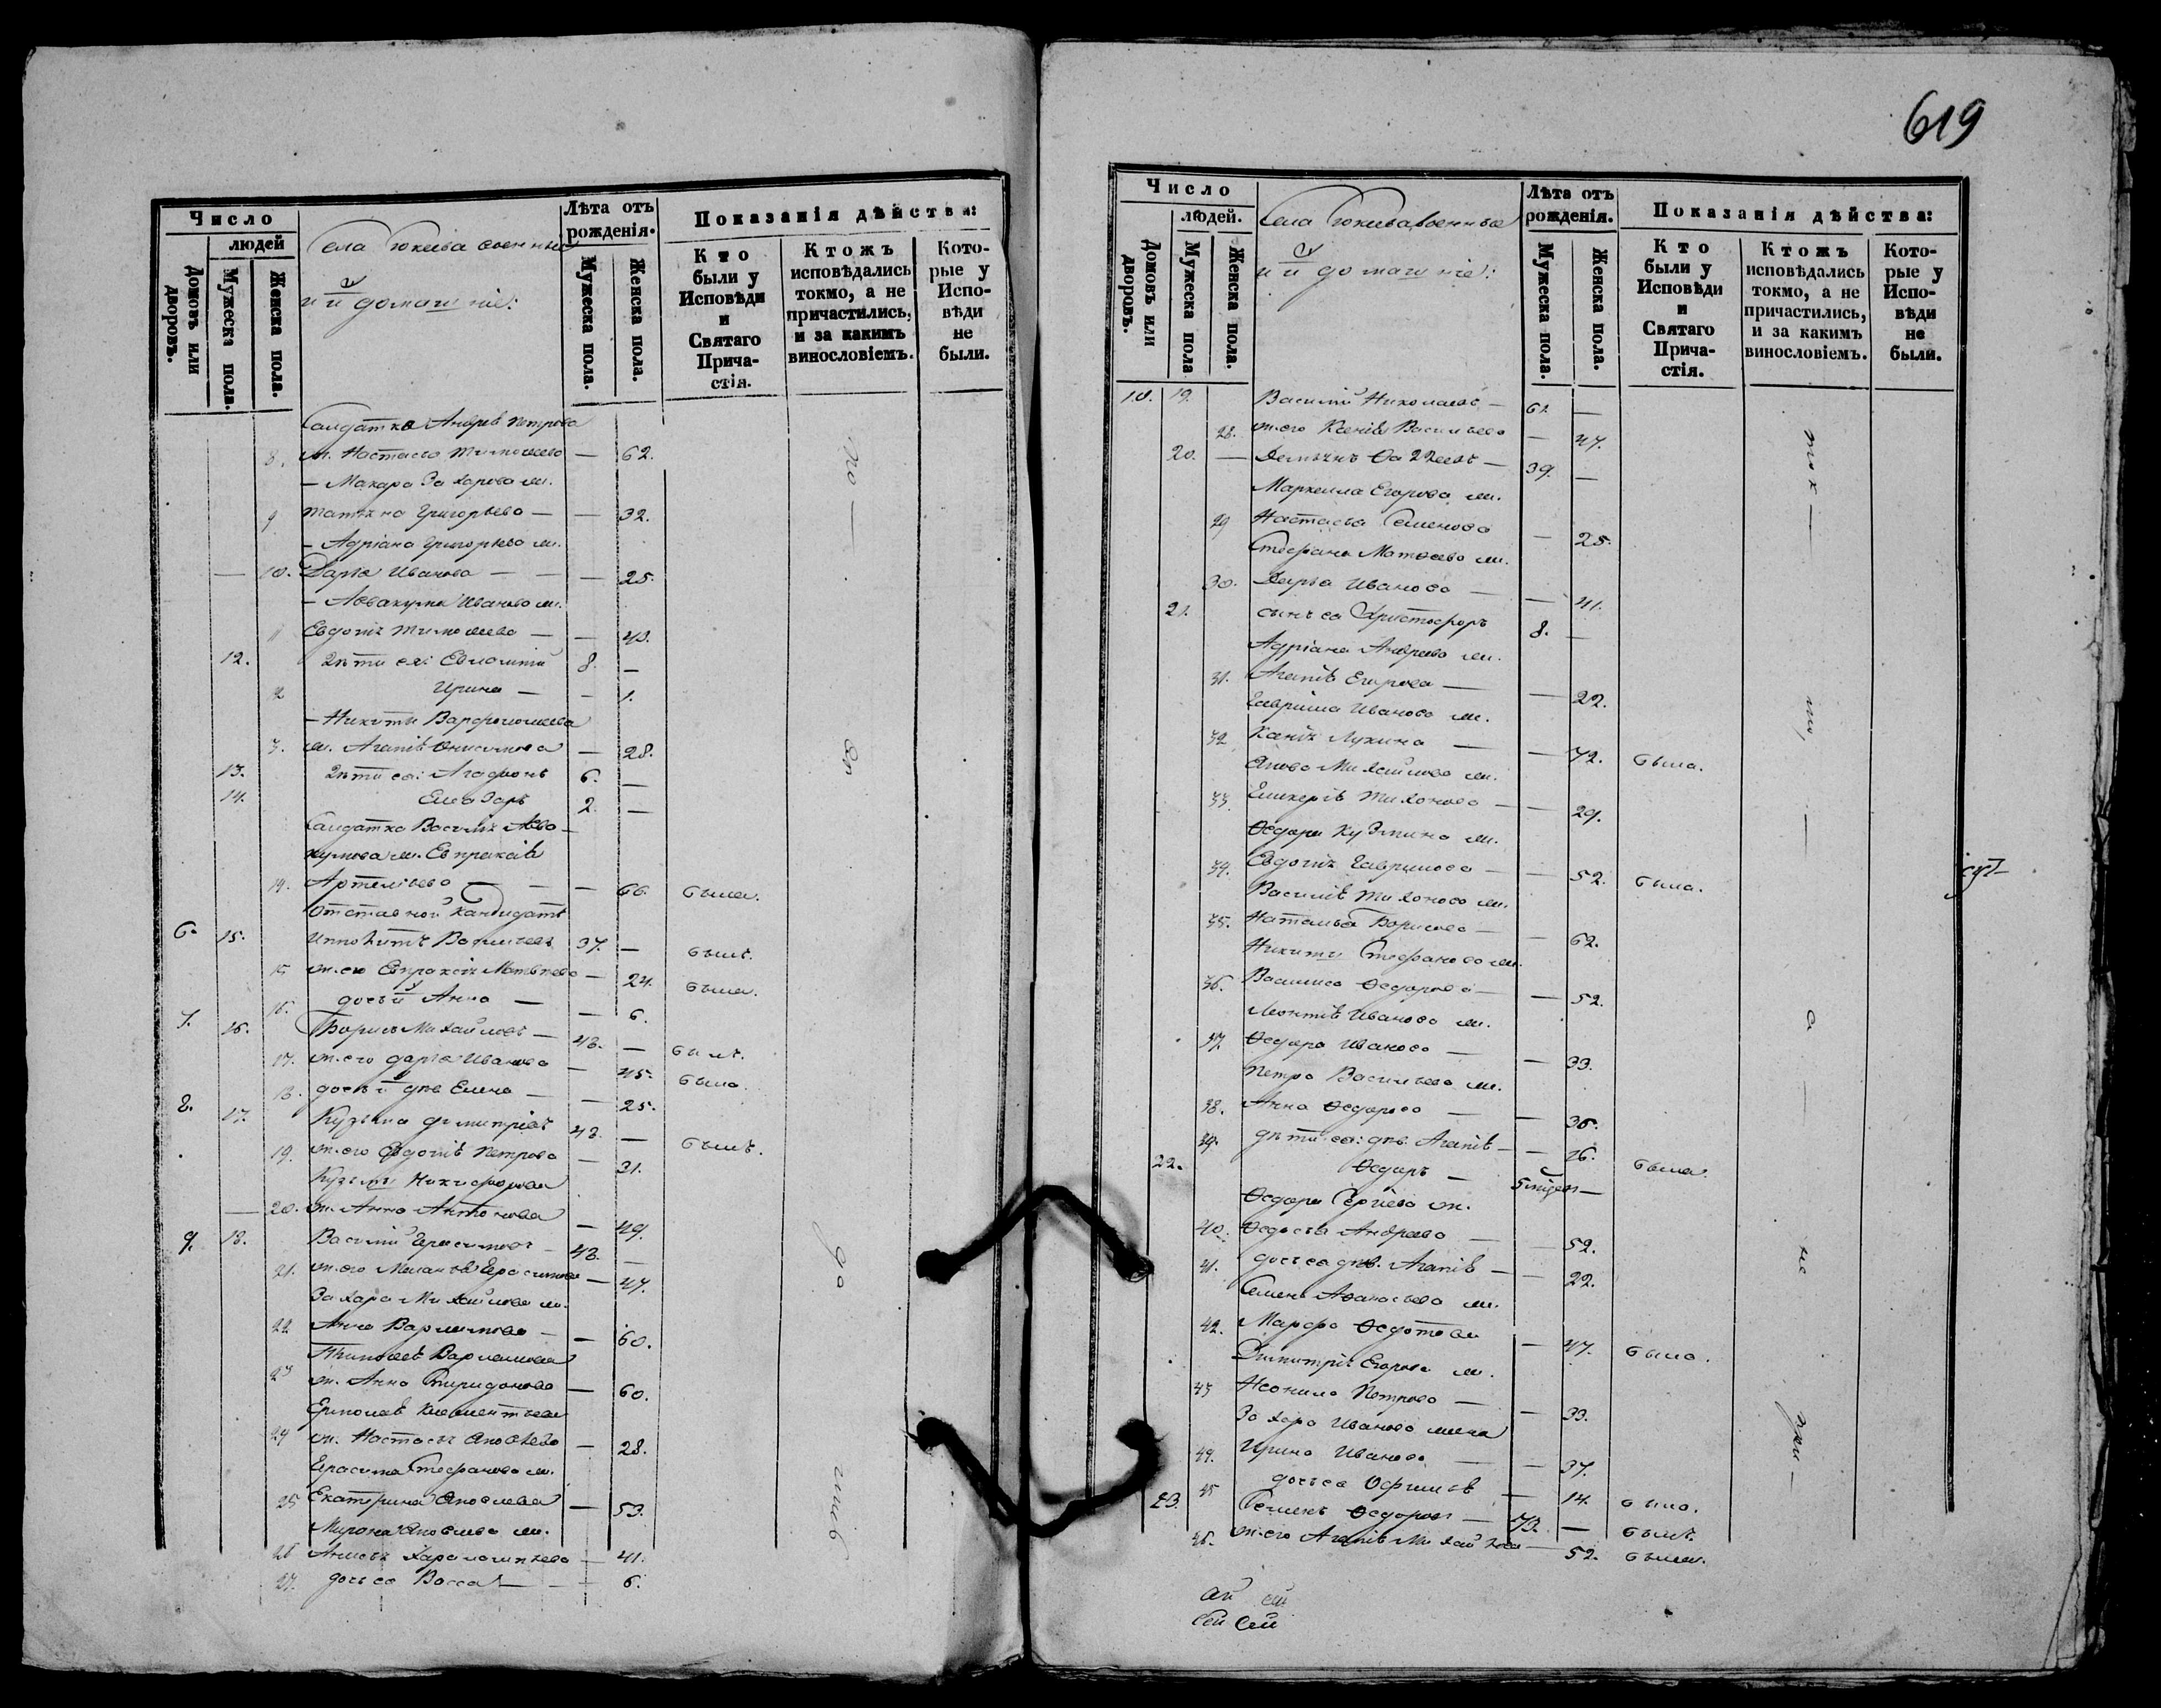 Число
людей
Домовъ или дворовъ.
Мужеска пола.
Женска пола.
Села военные
и домашніе:
Лѣта отъ рожденія.
Мужеска пола.
Женска пола.
Показанія дѣйства:
Кто были у Исповѣди и Святаго Причастія.
Ктожъ исповѣдались токмо, а не причастились, и за какимъ винословіемъ.
Которые у Исповѣди не были.
Салдатка Андрея Петрова
8. ж. Настасья Тимофеева — 62.
— Макара Захарова ж.
9 Татіана Григорьева — — 32.
— Адріана Григорьева ж.
— 10. Дарья Иванова — — — 25.
— Аввакума Иванова ж.
11 Евдокія Тимофеева — — 40.
12. дѣти ея: Евтихій 8. —
2 Ирина — — 1.
— Никиты Варфоломеева
3. ж. Агапія Онисимова — 28.
13. дѣти ея: Агафонъ 6. —
14. Елеазаръ 2. —
Салдатка Василія Авва-
кумова ж. Евпраксія
14. Артемьева — — — 66. была.
Отставной кандидатъ
6. 15. Ипполитъ Васильевъ 37. — былъ.
15. ж. его Евпраксія Матвѣева — 24. была.
16. дочь Анна — — 6.
7. 16. Борисъ Михайловъ — 48. — былъ.
17. ж. его Дарья Иванова — 45. была.
18. дочь дѣв. Елена — — 25.
8. 17. Кузьма Димитріевъ 43. — былъ.
19. ж. его Евдокія Петрова — 31.
Кузьмы Никифорова
— 20. ж. Анна Антонова — 49.
9. 18. Василій Герасимовъ — 43. —
21. ж. его Меланья Герасимова — 47.
Захара Михайлова ж.
22 Анна Варламова — — 60.
Тимофея Варламова
23 ж. Анна Спиридонова — 60.
Ермолая Клементьева
24 ж. Настасья Яковлева — 28.
Герасима Стефанова ж.
25 Екатерина Яковлева — 53.
Мирона Яковлева ж.
26 41.
27. дочь ея Васса — — 6.
619
Число
людей.
Домовъ или дворовъ.
Мужеска пола
Женска пола.
Села военные
и домашніе:
Лѣта отъ рожденія.
Мужеска пола.
Женска пола.
Показанія дѣйства:
Кто были у Исповѣди и Святаго Причастія.
Ктожъ исповѣдались токмо, а не причастились, и за какимъ винословіемъ.
Которые у Исповѣди не были.
10. 19. Василій Николаевъ — 61 —
28. ж. его Ксенія Васильева — 47.
20. — Демьянъ Фаддеевъ — 39. —
Маркелла Егорова ж.
29 Настасья Семенова — 25.
Стефана Матвеева ж.
30. Дарья Иванова — — 41.
21. сынъ ея Христофоръ 8. —
Адріана Андреева ж.
31. Агапія Егорова — — 22.
Гавриила Иванова ж.
32 Ксенія Лукина — — 72. была.
Якова Михайлова ж.
33. Гликерія Тихонова — — 29.
Ѳедора Кузмина ж.
34. Евдокія Гаврилова — — 52. была.
Василія Тихонова ж.
35. Наталья Борисова — — 62.
Никиты Стефанова ж.
36. Василиса Ѳедорова — — 52.
Леонтія Иванова ж.
37. Ѳедора Иванова — — 33.
Петра Васильева ж.
38. Анна Ѳедорова — — 36.
39. дѣти ея: дѣв. Агапія — — 16. была.
22. Ѳедоръ — 5 —
Ѳедора Сергіева ж.
40. Ѳедосья Андреева — — 52.
41. дочь ея дѣв. Агапія — — 22.
Семена Аѳанасьева ж.
42. Марфа Ѳедотова — 47. была.
Димитрія Егорова ж.
43 Неонила Петрова — — 33.
Захара Иванова жена
44. Ирина Иванова — — 37.
45 дочь ея — 14. была.
23. Семенъ Ѳедоровъ — 73. — былъ.
46. ж. его Агапія Михайлова — 52. была.